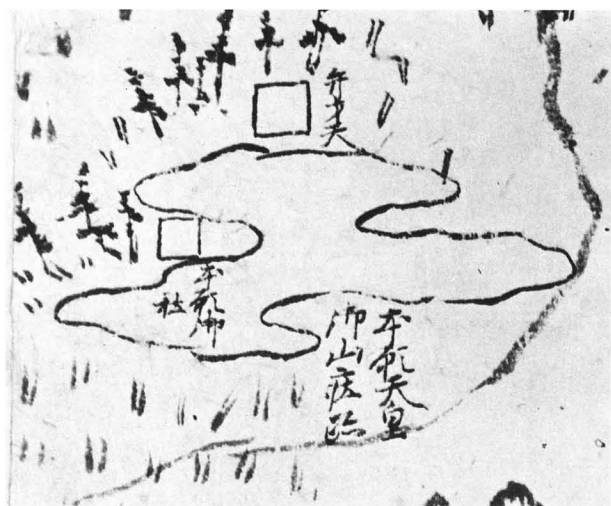 弁才天
本願御
社
本願天皇
御山庄跡